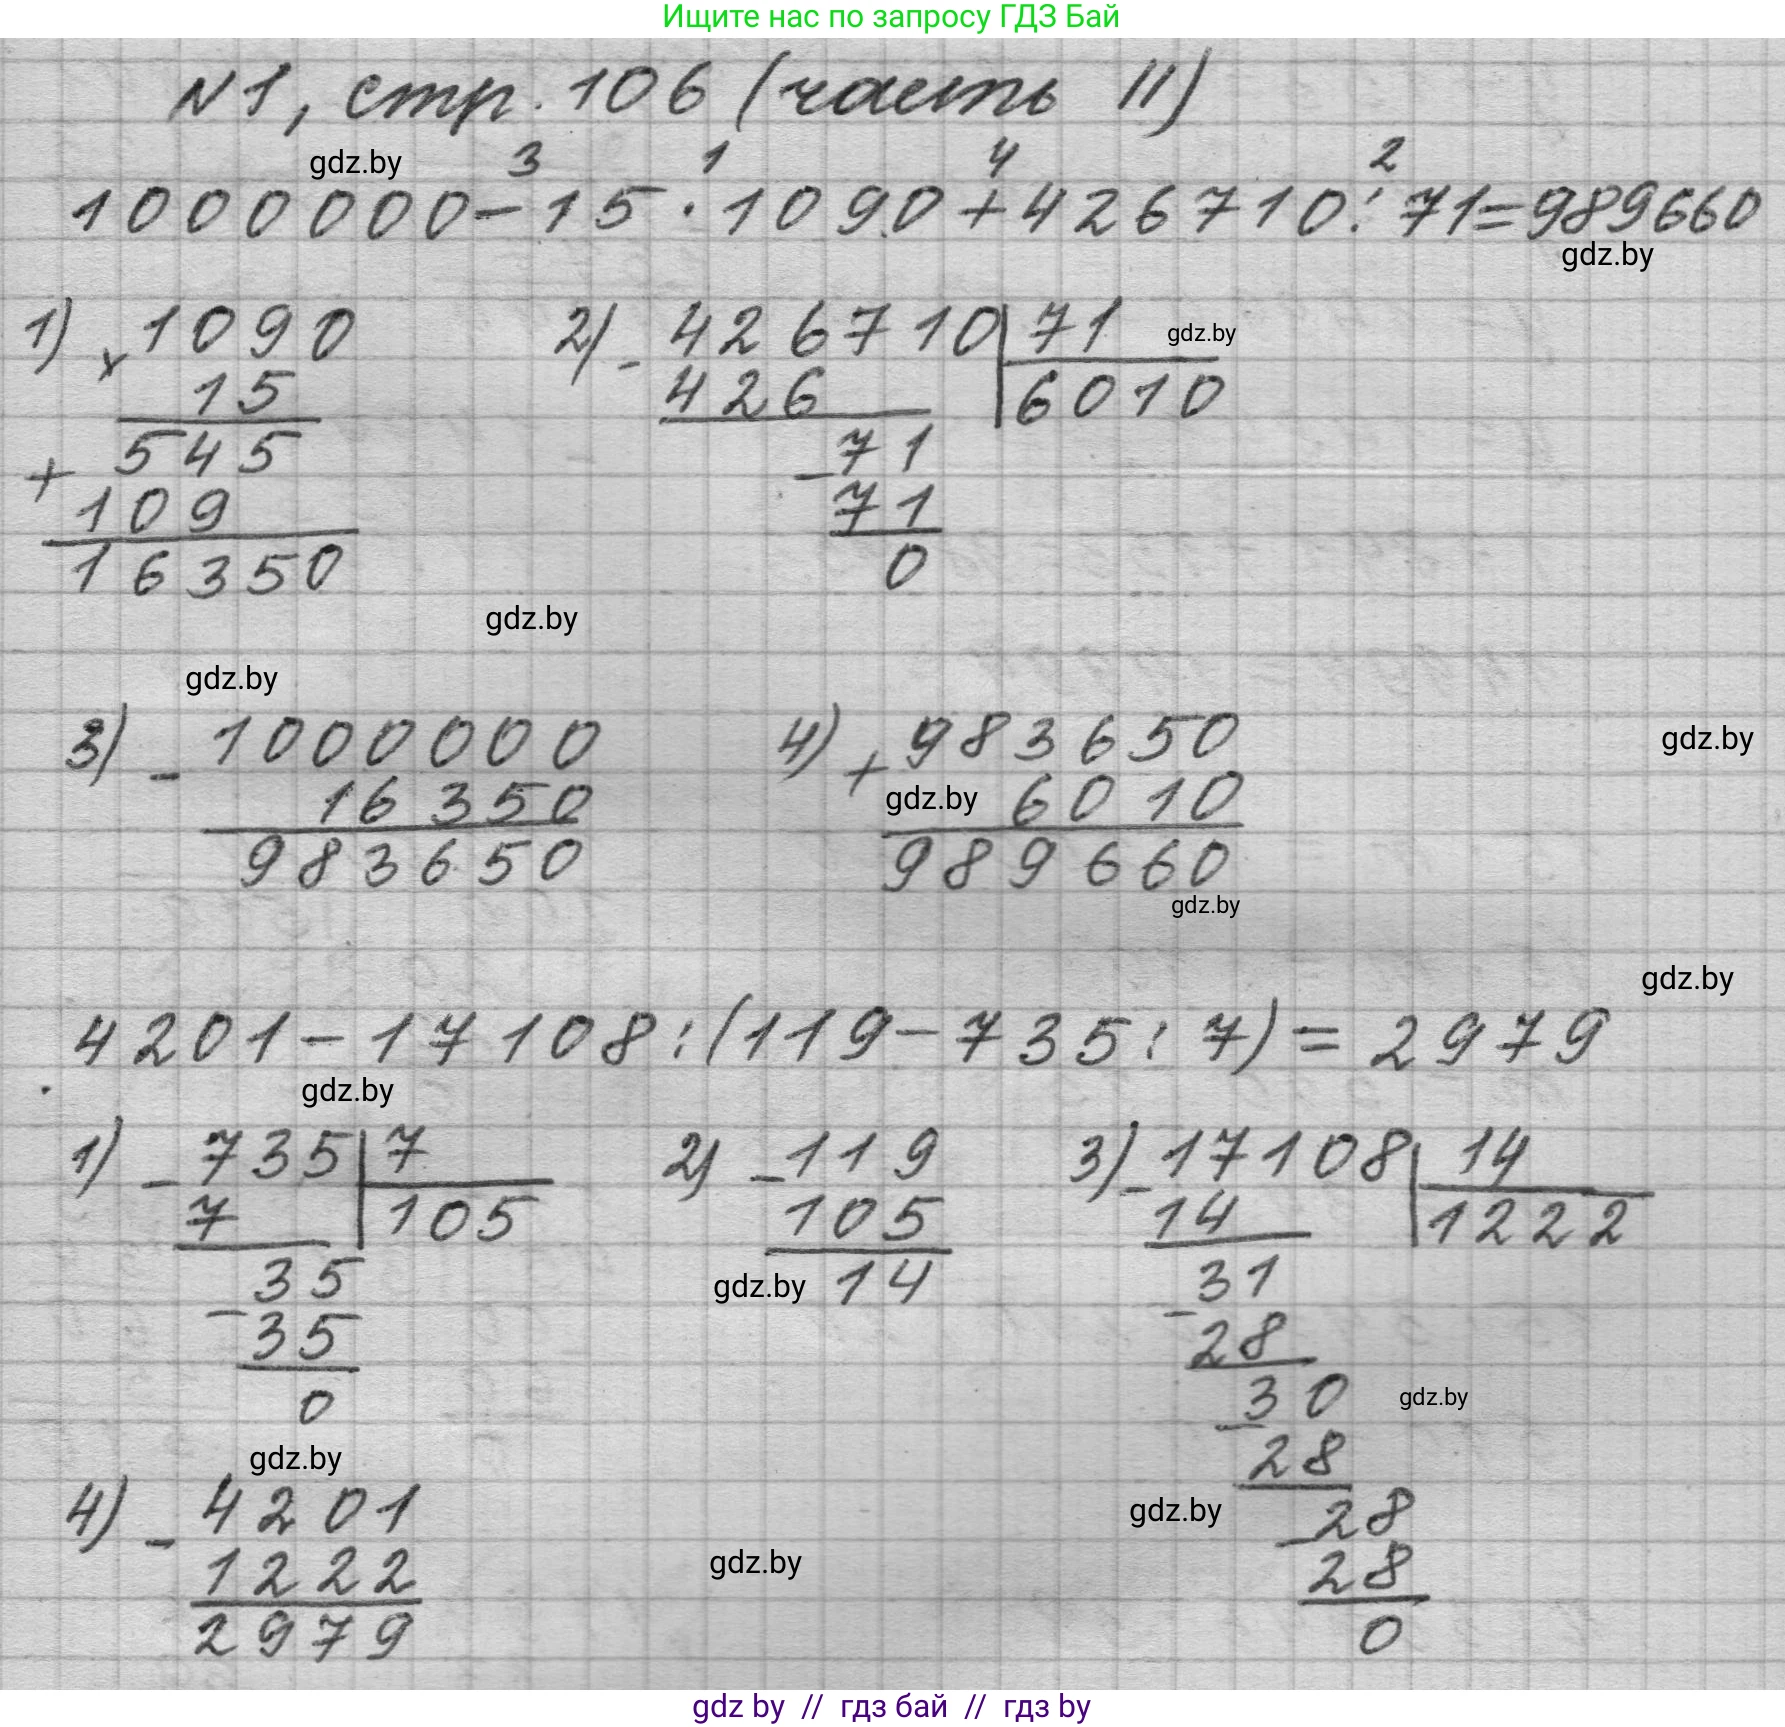 Ищите нас по запросу ГДЗ Бай
N1, стр. 106 (часть II)
gdz.by 3 1 4 2
1000000-15·1090+426710:71=989660
gdz.by
1) × 1090 2) - 426710 | 71 gdz.by
15 426 6010
545 - 71
+ 109 71
16350 0
gdz.by
gdz.by
3) - 1000000 4) + 983650 gdz.by
16350 gdz.by 6010
983650 989660
gdz.by
gdz.by
4201-17108:(119-735:7)=2979
gdz.by
1) - 735 | 7 2) - 119 3) - 17108 | 14
7 105 105 14 1222
35 gdz.by 14 31
- 35 - 28
0 30 gdz.by
gdz.by - 28
4) - 4201 gdz.by - 28
1222 gdz.by 28
2979 0
gdz by // гдз бай // гдз by